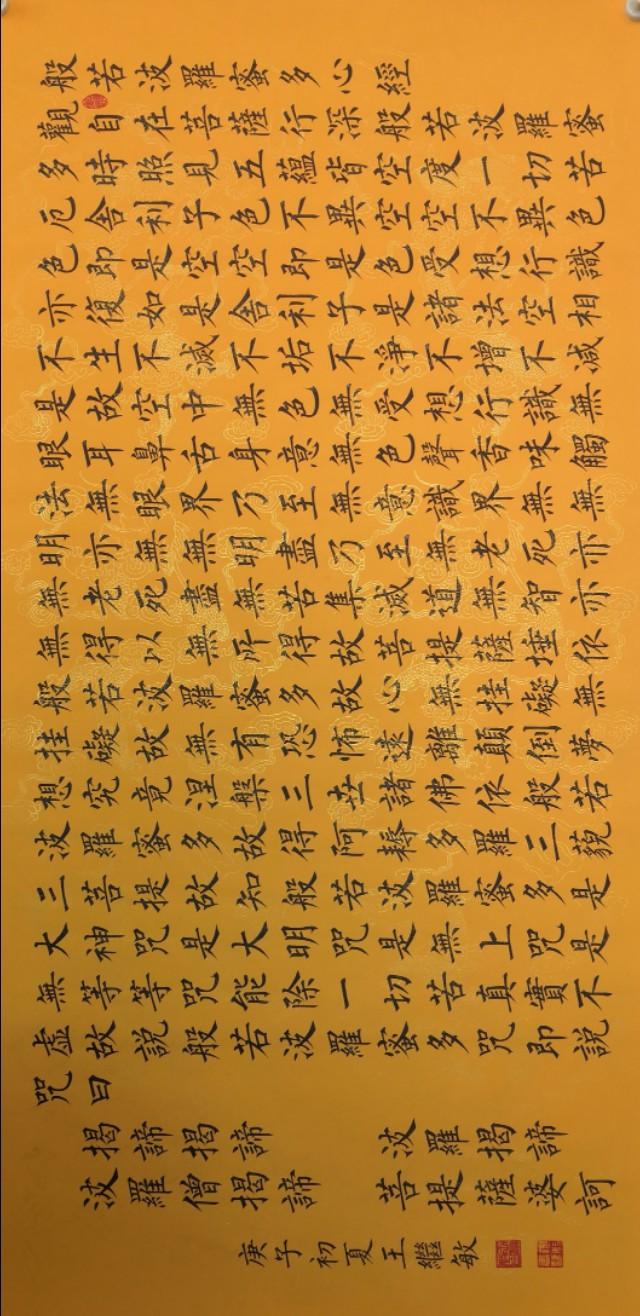 般若波羅蜜多心經
觀自在菩薩行深般若波羅蜜
多時照見五蘊皆空度一切苦
厄舍利子色不異空空不異色
色即是空空即是色受想行識
亦復如是舍利子是諸法空相
不生不滅不垢不淨不增不減
是故空中無色無受想行識無
眼耳鼻舌身意無色聲香味觸
法無眼界乃至無意識界無無
明亦無無明盡乃至無老死亦
無老死盡無苦集滅道無智亦
無得以無所得故菩提薩埵依
般若波羅蜜多故心無挂礙無
挂礙故無有恐怖遠離顛倒夢
想究竟涅槃三世諸佛依般若
波羅蜜多故得阿耨多羅三藐
三菩提故知般若波羅蜜多是
大神咒是大明咒是無上咒是
無等等咒能除一切苦真實不
虛故說般若波羅蜜多咒即說
咒曰
揭諦揭諦 波羅揭諦
波羅僧揭諦 菩提薩婆訶
庚子初夏王繼敏